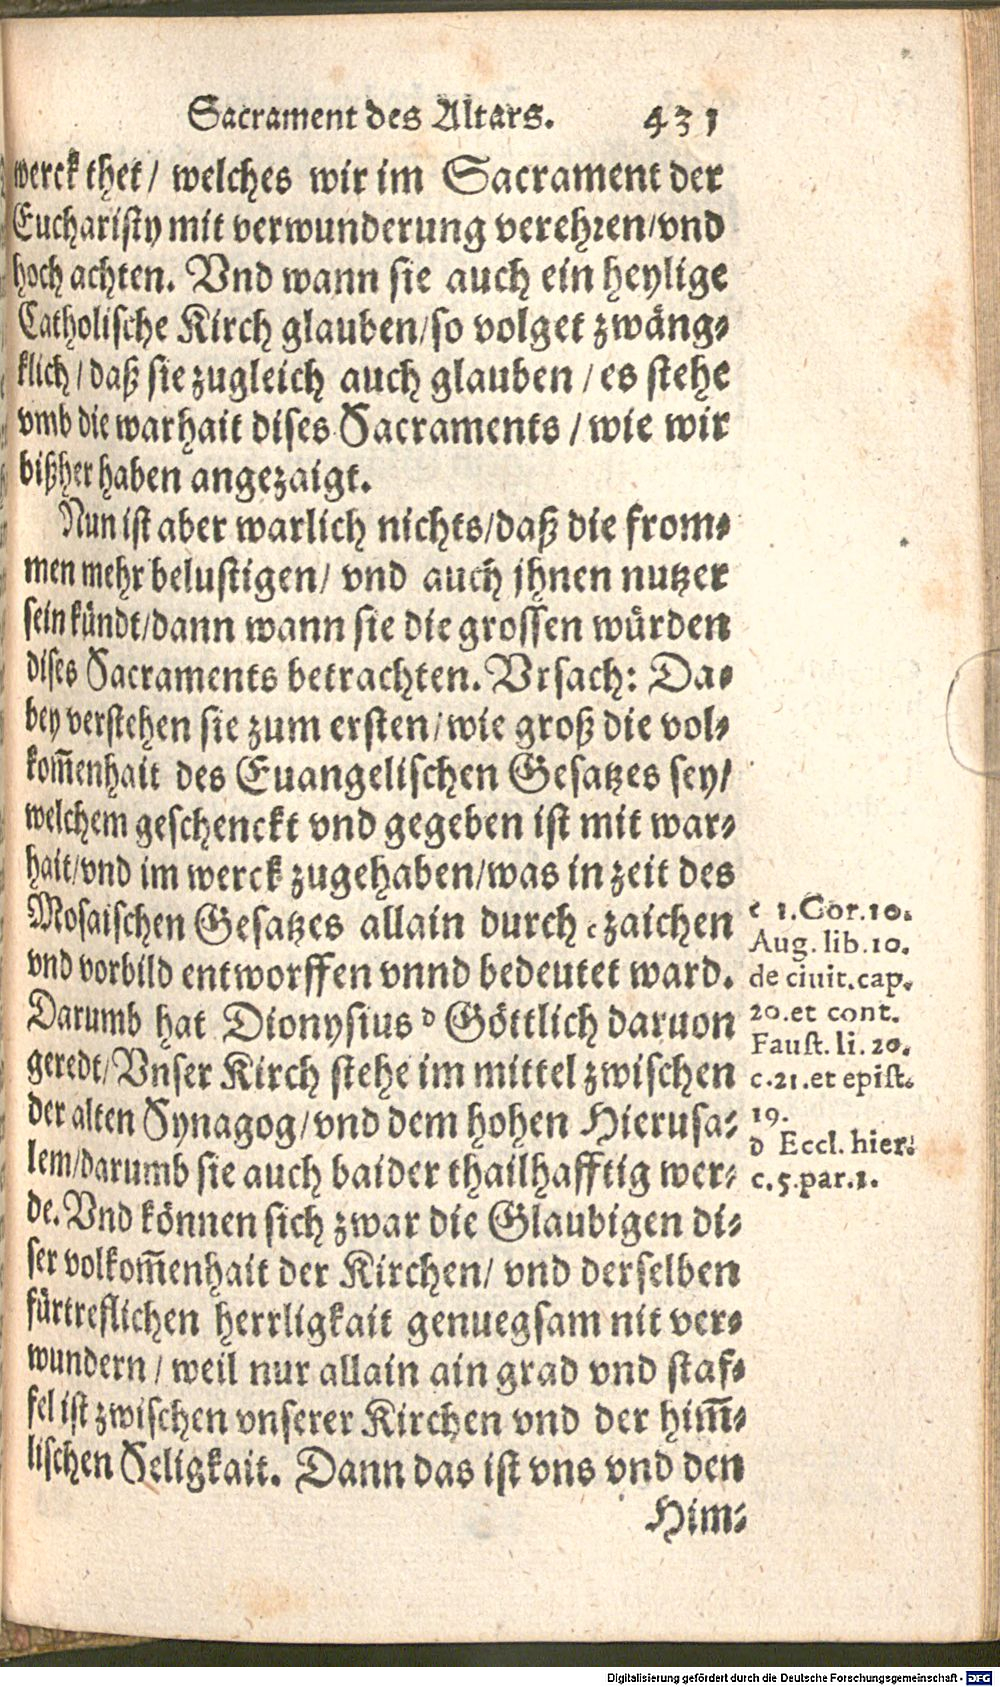 Sacrament des Altars. 431
werck thet/ welches wir im Sacrament der
Eucharisty mit verwunderung verehren/vnd
hoch achten. Vnd wann sie auch ein heylige
Catholische Kirch glauben/so volget zwäng-
klich/daß sie zugleich auch glauben/es stehe
vmb die warhait dises Sacraments/wie wir
bißher haben angezaigt.
Nun ist aber warlich nichts/daß die from-
men mehr belustigen/ vnd auch jhnen nutzer
sein kündt/dann wann sie die grossen würden
dises Sacraments betrachten. Vrsach: Da-
bey verstehen sie zum ersten/wie groß die vol-
kom̃enhait des Euangelischen Gesatzes sey/
welchem geschenckt vnd gegeben ist mit war-
hait/vnd im werck zugehaben/was in zeit des
Mosaischen Gesatzes allain durch c zaichen
vnd vorbild entworffen vnnd bedeutet ward.
Darumb hat Dionysius d Göttlich daruon
geredt/Vnser Kirch stehe im mittel zwischen
der alten Synagog/vnd dem hohen Hierusa-
lem/darumb sie auch baider thailhafftig wer-
de. Vnd können sich zwar die Glaubigen di-
ser volkom̃enhait der Kirchen/ vnd derselben
fürtreflichen herrligkait genuegsam nit ver-
wundern/ weil nur allain ain grad vnd staf-
fel ist zwischen vnserer Kirchen vnd der him̃-
lischen Seligkait. Dann das ist vns vnd den
Him-
c 1.Cor.10.
Aug. lib.10.
de ciuit.cap.
20.et cont.
Faust. li. 20.
c.21.et epist.
19.
d Eccl. hier.
c.5.par.1.
Digitalisierung gefördert durch die Deutsche Forschungsgemeinschaft - DFG